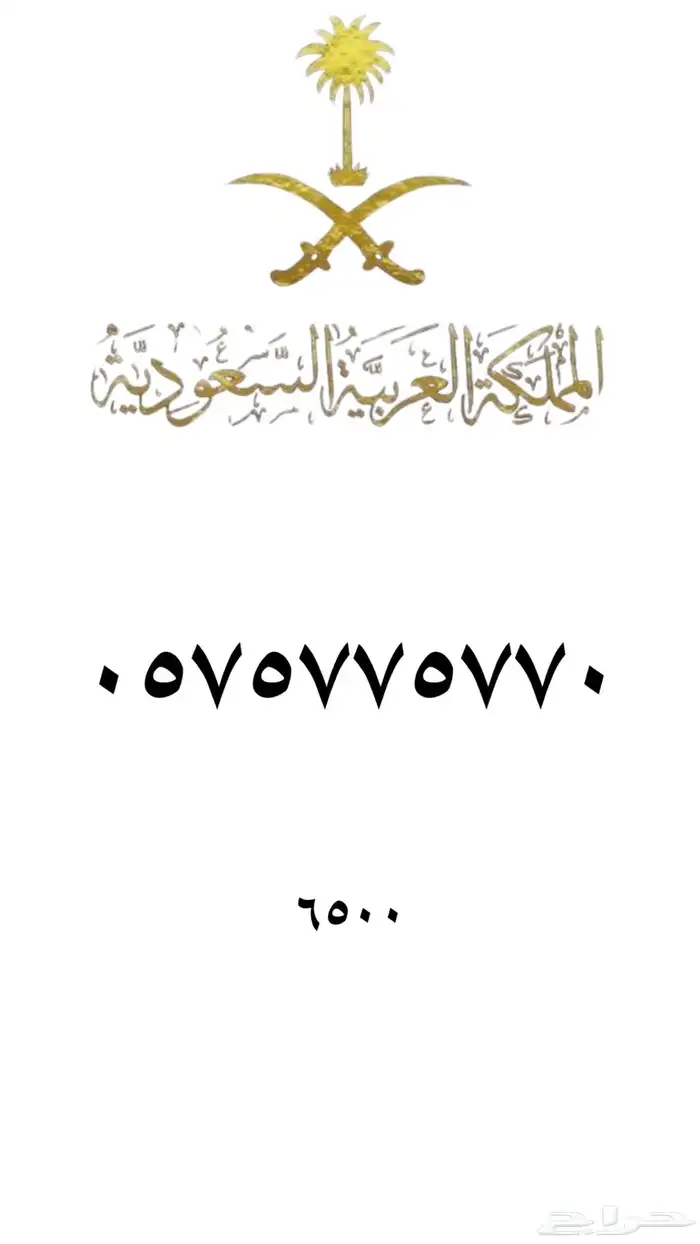 المملكة العربية السعودية
٠٥٧٥٧٧٥٧٧٠
٦٥٠٠
حراج